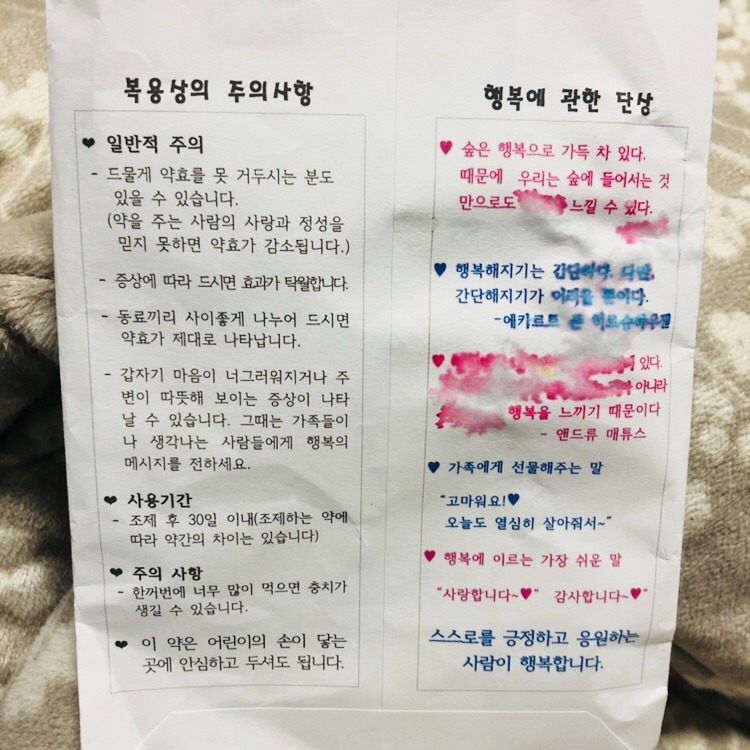 복용상의 주의사항
❤ 일반적 주의
- 드물게 약효를 못 거두시는 분도
있을 수 있습니다.
(약을 주는 사람의 사랑과 정성을
믿지 못하면 약효가 감소됩니다.)
- 증상에 따라 드시면 효과가 탁월합니다.
- 동료끼리 사이좋게 나누어 드시면
약효가 제대로 나타납니다.
- 갑자기 마음이 너그러워지거나 주
변이 따뜻해 보이는 증상이 나타
날 수 있습니다. 그때는 가족들이
나 생각나는 사람들에게 행복의
메시지를 전하세요..
❤ 사용기간
- 조제 후 30일 이내(조제하는 약에
따라 약간의 차이는 있습니다)
❤ 주의 사항
- 한꺼번에 너무 많이 먹으면 충치가
생길 수 있습니다.
❤ 이 약은 어린이의 손이 닿는
곳에 안심하고 두셔도 됩니다.
행복에 관한 단상
♥ 숲은 행복으로 가득 차 있다.
때문에 우리는 숲에 들어서는 것
만으로도 느낄 수 있다.
♥ 행복해지기는 간단하다. 다만,
간단해지기가 어려울 뿐이다.
-에카르트 폰 히르슈하우젠
♥ 있다.
아니라
행복을 느끼기 때문이다
- 앤드류 매튜스
♥ 가족에게 선물해주는 말
“고마워요!♥
오늘도 열심히 살아줘서~”
♥ 행복에 이르는 가장 쉬운 말
“사랑합니다~♥” 감사합니다~♥”
스스로를 긍정하고 응원하는
사람이 행복합니다.